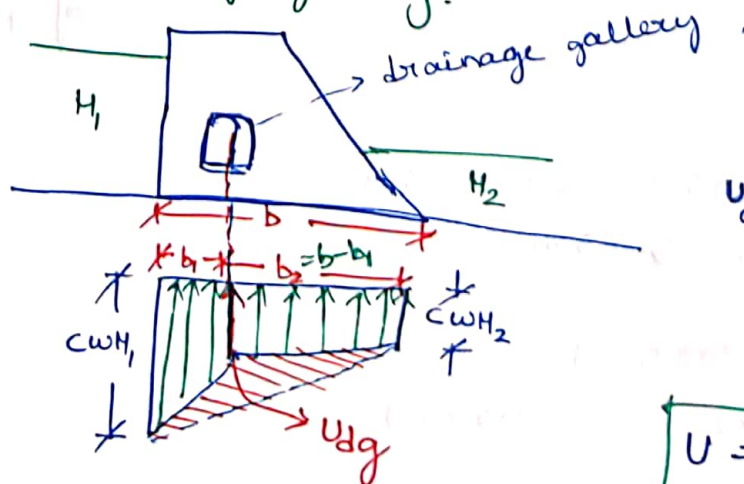 drainage gallery
H₁
H₂
b
b₁
b₂ = b-b₁
CωH₁
CωH₂
Udg
U =